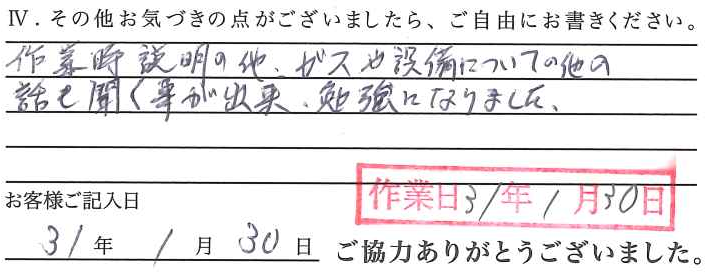 Ⅳ．その他お気づきの点がございましたら、ご自由にお書きください。
作業時説明の他、ガスや設備についての他の
話も聞く事が出来、勉強になりました、
作業日31年1月30日
お客様ご記入日
31年1月30日 ご協力ありがとうございました。